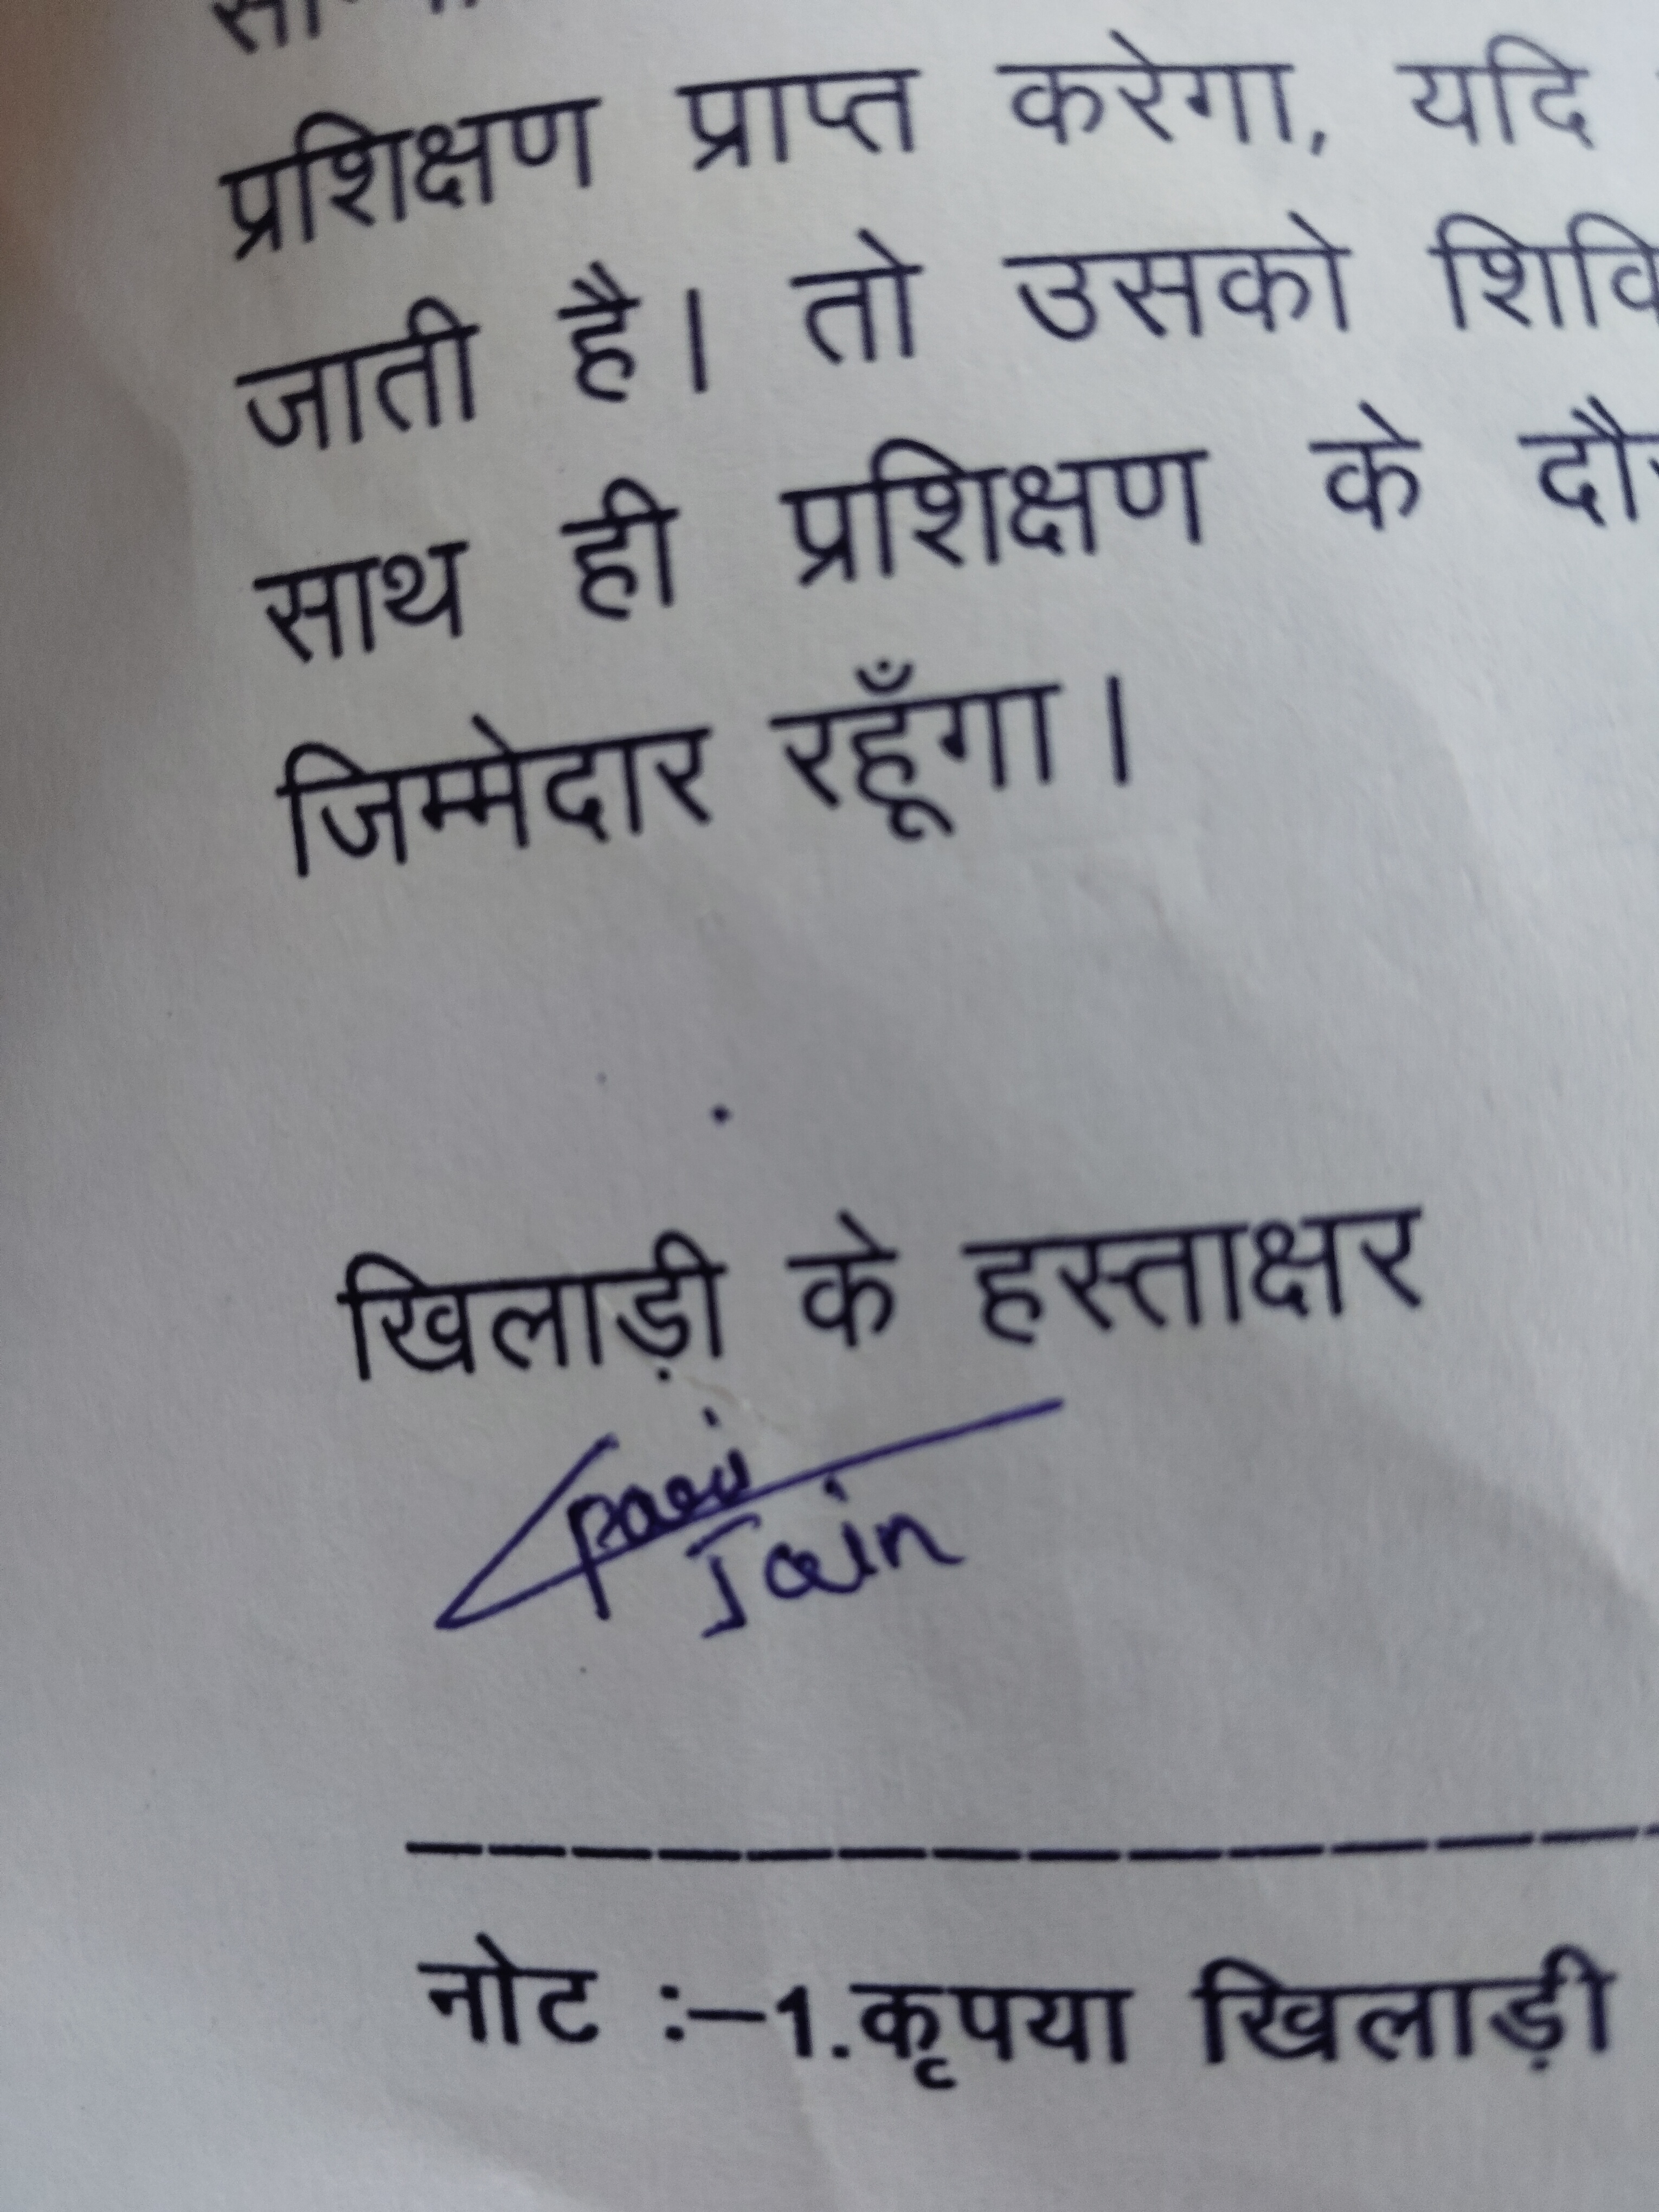 प्रशिक्षण प्राप्त करेगा, यदि
जाती है। तो उसको शिवि
साथ ही प्रशिक्षण के दौ
जिम्मेदार रहूँगा।
खिलाड़ी के हस्ताक्षर
Jain
नोट :–1.कृपया खिलाड़ी